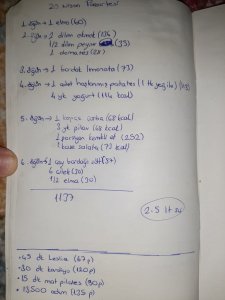 20 Nisan Pazartesi
1. öğün → 1 elma (60)
2. öğün → 1 dilim ekmek (104)
1/2 dilim peynir (33)
1 domates (28)
3. öğün → 1 bardak limonata (73)
4. öğün → 1 adet haşlanmış patates (1 tk yağ ile) (113)
4 yk yoğurt (114 kcal)
5. öğün → 1 kepçe çorba (68 kcal)
3 yk pilav (68 kcal)
1 porsiyon et (252)
1 kase salata (73 kcal)
6. öğün → 1 çay bardağı süt (57)
6 çilek (30)
1/2 elma (30)
1137
2.5 lt su
• 45 dk (67 p)
• 30 dk kardiyo (120 p)
• 15 dk mat pilates (90 p)
• 13500 adım (135 p)